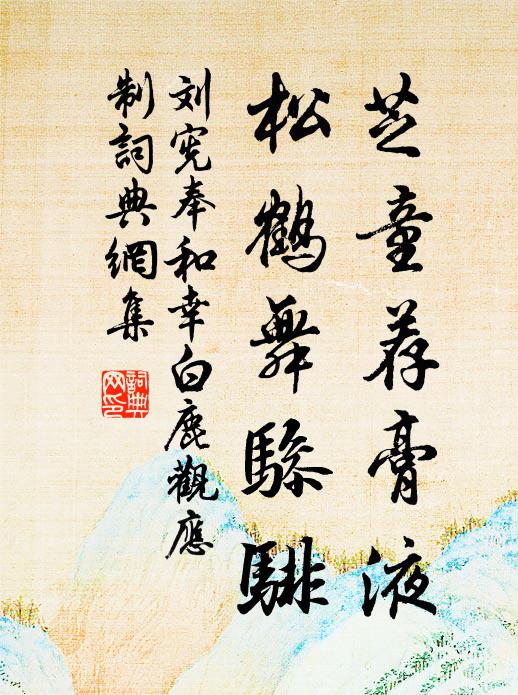 芝童荐膏液
松鹤舞驂騑
刘宪奉和幸白鹿觀應
制詞典網集
詞典网印